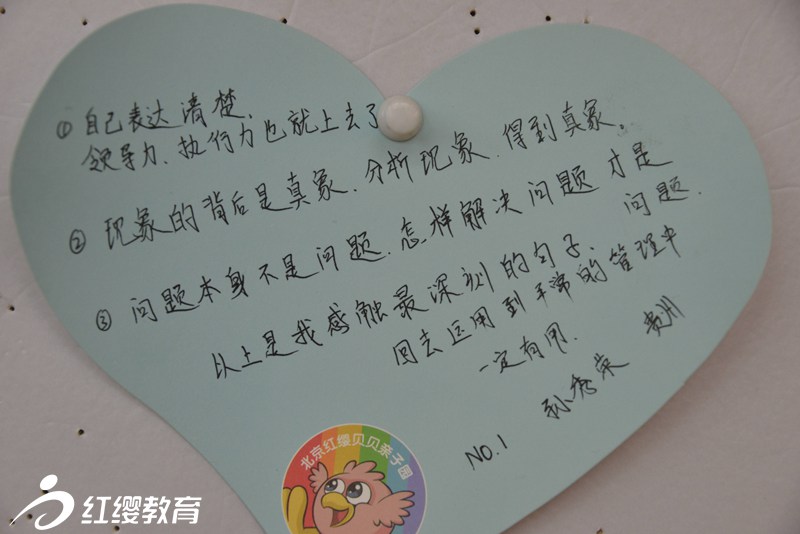 ① 自己表达清楚、
领导力、执行力也就上去了
② 现象的背后是真象、分析现象、得到真象。
③ 问题本身不是问题、怎样解决问题才是
问题.
以上是我感触最深刻的句子、
回去运用到平常的管理中
一定有用.
NO.1 孙秀荣 贵州
北京红缨贝贝亲子园
红缨教育